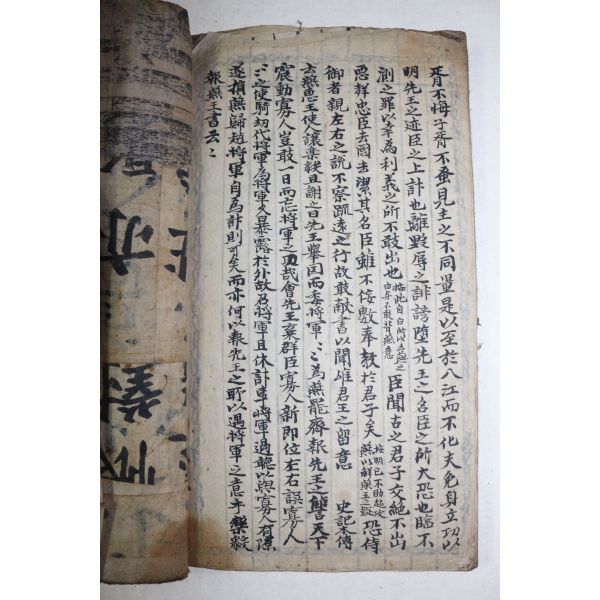 胥不悔子胥不蚤見主之不同量是以至於入江而不化夫免身立功以
明先王之迹臣之上計也離毀辱之誹謗墮先王之名臣之所大恐也臨不
測之罪以幸為利義之所不敢出也 臣聞古之君子交絶不出
惡群忠臣去國去潔其名臣雖不佞數奉教於君子矣 恐侍
御者親左右之說不察疏遠之行故敢献書以聞唯君王之留意 史記本傳
去燕惠王使人讓樂毅且謝之曰先王舉国而委將軍〻〻為燕罷齊報先王之讐天下
震動寡人豈敢一日而忘將軍之功哉會先王棄群臣寡人新即位左右誤寡人
〻〻之使騎刼代將軍為將軍久暴露於外故召將軍且休計事將軍過聽以與寡人有隙
遂捐燕歸趙將軍自為計則可矣而亦何以報先王之所以遇將軍之意乎樂毅
報燕王書云〻